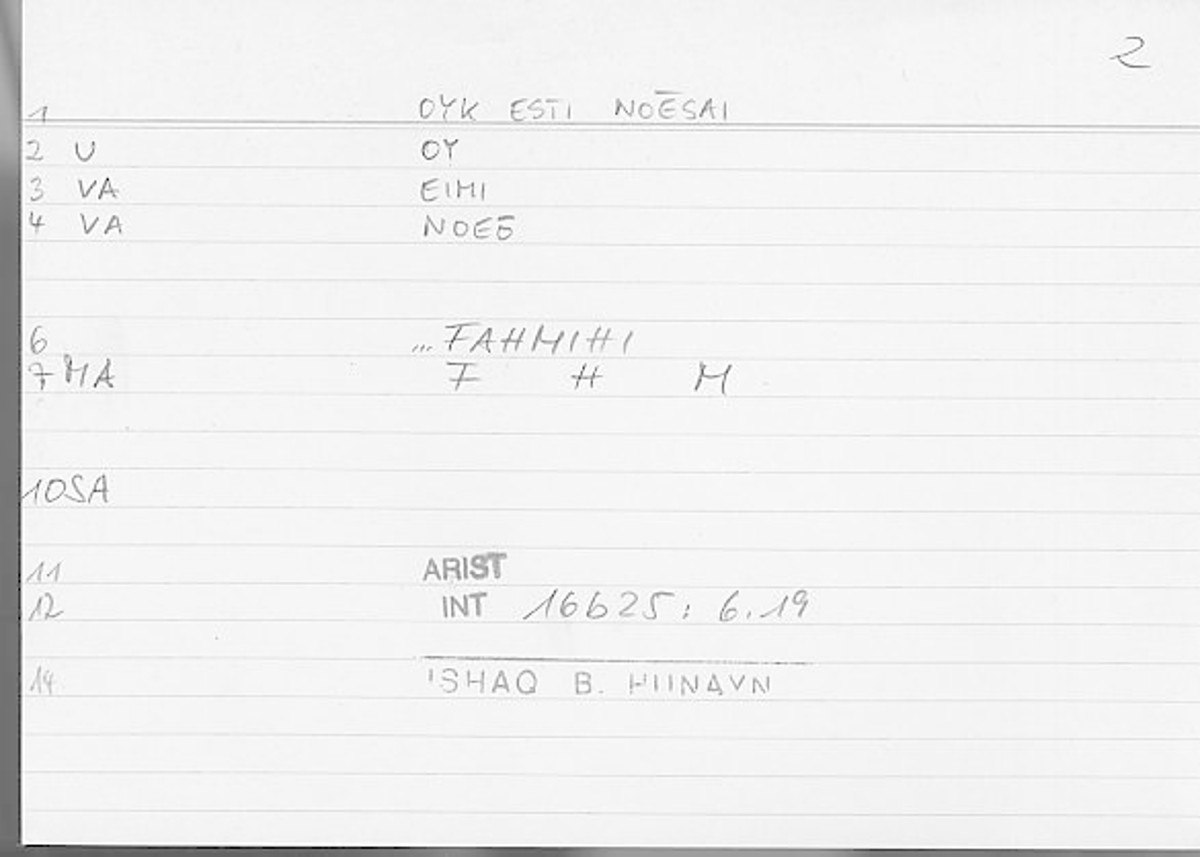 2
1 OYK ESTI NOĒSAI
2 U OY
3 VA EIMI
4 VA NOEŌ
6 ... FAHMIHI
7 MA F H M
10 SA
11 ARIST
12 INT 16b25 : 6.19
14 ISHAQ B. HUNAYN